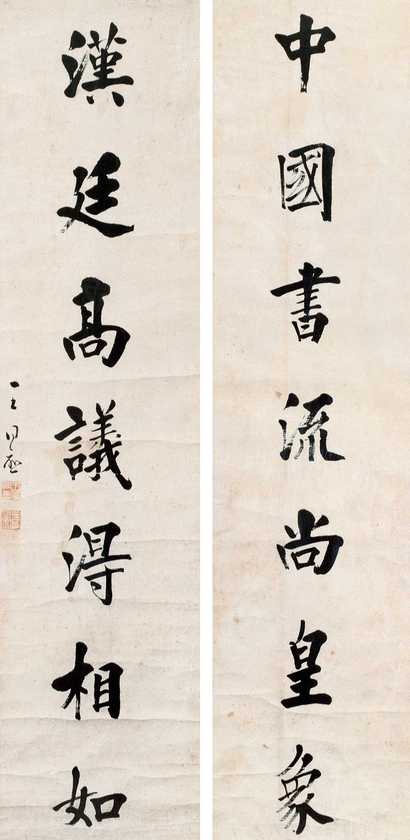 中國書流尚皇象
漢廷高議得相如
王同愈